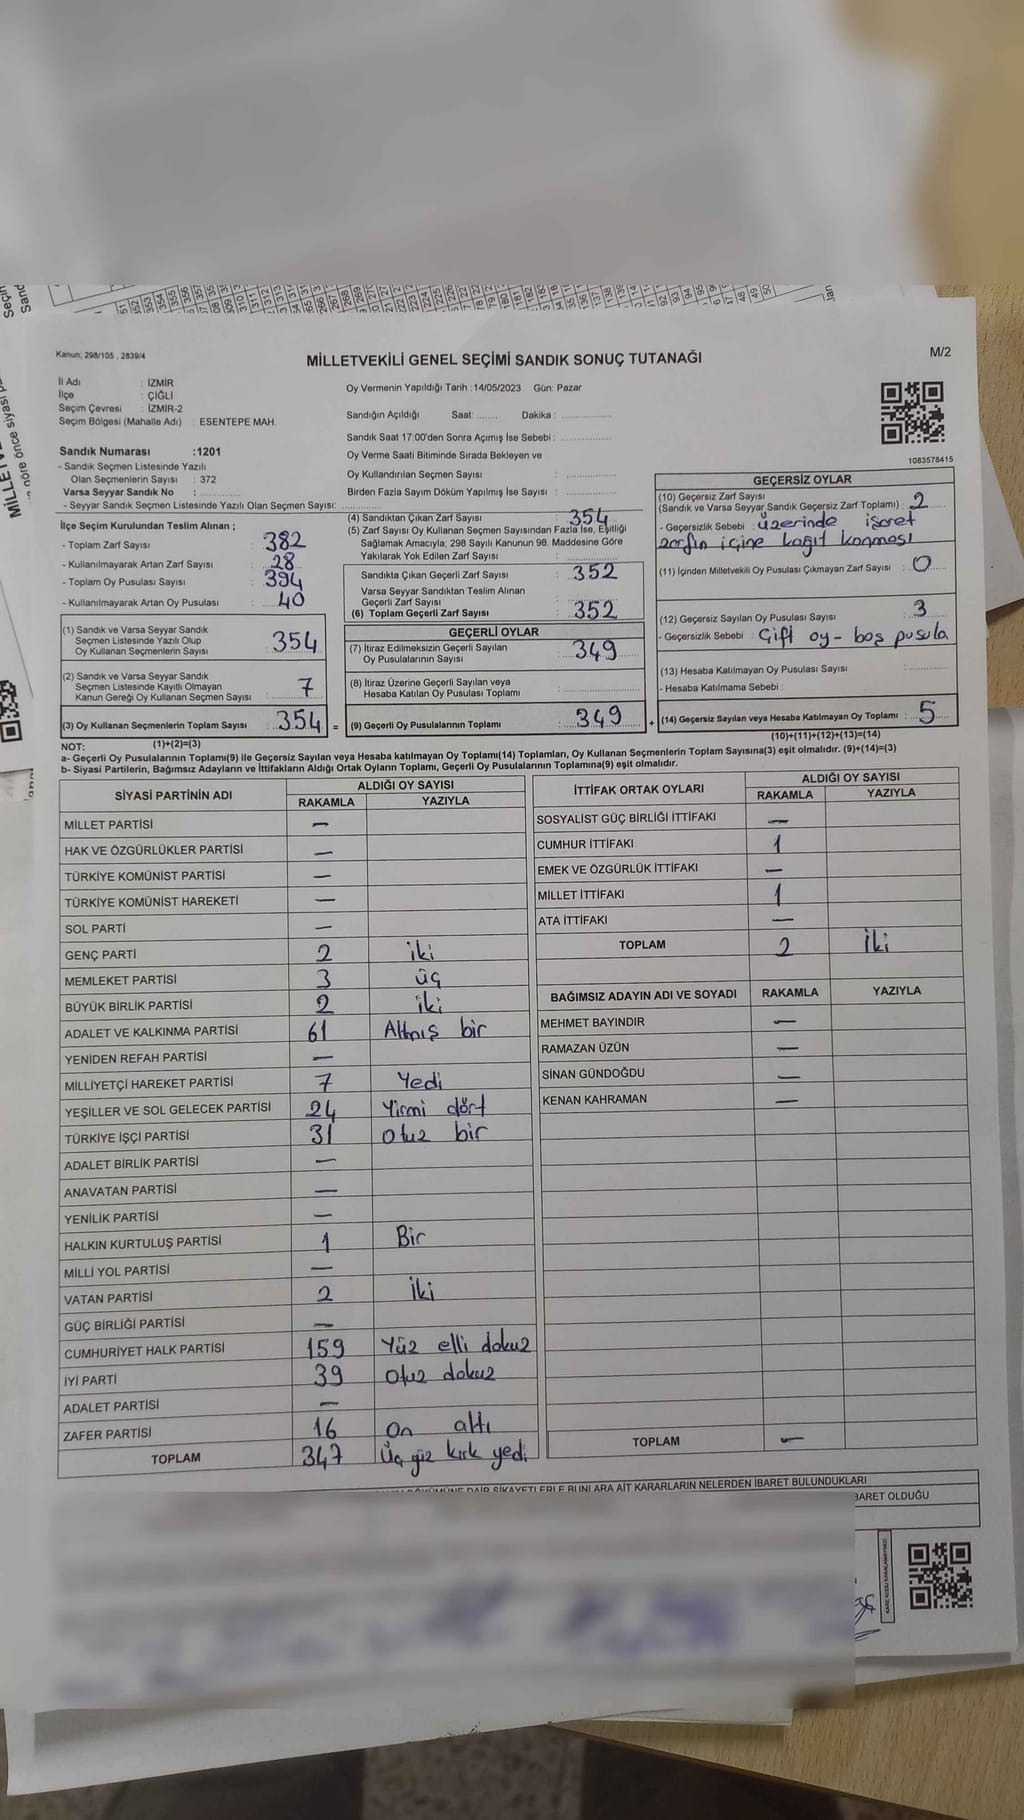 Kanun; 298/105 , 2839/4
MİLLETVEKİLİ GENEL SEÇİMİ SANDIK SONUÇ TUTANAĞI
M/2
İl Adı : İZMİR
İlçe : ÇİĞLİ
Seçim Çevresi : İZMİR-2
Seçim Bölgesi (Mahalle Adı) : ESENTEPE MAH.
Sandık Numarası :1201
- Sandık Seçmen Listesinde Yazılı
Olan Seçmenlerin Sayısı : 372
Varsa Seyyar Sandık No :
- Seyyar Sandık Seçmen Listesinde Yazılı Olan Seçmen Sayısı:
Oy Vermenin Yapıldığı Tarih :14/05/2023 Gün: Pazar
Sandığın Açıldığı Saat: Dakika :
Sandık Saat 17:00'den Sonra Açımış İse Sebebi :
Oy Verme Saati Bitiminde Sırada Bekleyen ve
Oy Kullandırılan Seçmen Sayısı :
Birden Fazla Sayım Döküm Yapılmış İse Sayısı :
1083578415
İlçe Seçim Kurulundan Teslim Alınan ;
- Toplam Zarf Sayısı : 382
- Kullanılmayarak Artan Zarf Sayısı : 28
- Toplam Oy Pusulası Sayısı : 394
- Kullanılmayarak Artan Oy Pusulası : 40
(1) Sandık ve Varsa Seyyar Sandık
Seçmen Listesinde Yazılı Olup
Oy Kullanan Seçmenlerin Sayısı : 354
(2) Sandık ve Varsa Seyyar Sandık
Seçmen Listesinde Kayıtlı Olmayan
Kanun Gereği Oy Kullanan Seçmen Sayısı : 7
(3) Oy Kullanan Seçmenlerin Toplam Sayısı : 354 =
(4) Sandıktan Çıkan Zarf Sayısı : 354
(5) Zarf Sayısı Oy Kullanan Seçmen Sayısından Fazla İse, Eşitliği
Sağlamak Amacıyla; 298 Sayılı Kanunun 98. Maddesine Göre
Yakılarak Yok Edilen Zarf Sayısı :
Sandıkta Çıkan Geçerli Zarf Sayısı : 352
Varsa Seyyar Sandıktan Teslim Alınan
Geçerli Zarf Sayısı :
(6) Toplam Geçerli Zarf Sayısı : 352
GEÇERLİ OYLAR
(7) İtiraz Edilmeksizin Geçerli Sayılan
Oy Pusulalarının Sayısı : 349
(8) İtiraz Üzerine Geçerli Sayılan veya
Hesaba Katılan Oy Pusulası Toplamı :
(9) Geçerli Oy Pusulalarının Toplamı : 349 +
GEÇERSİZ OYLAR
(10) Geçersiz Zarf Sayısı
(Sandık ve Varsa Seyyar Sandık Geçersiz Zarf Toplamı) : 2
- Geçersizlik Sebebi : üzerinde işaret
zarfın içine kağıt konması
(11) İçinden Milletvekili Oy Pusulası Çıkmayan Zarf Sayısı : 0
(12) Geçersiz Sayılan Oy Pusulası Sayısı : 3
- Geçersizlik Sebebi : Çift oy - boş pusula
(13) Hesaba Katılmayan Oy Pusulası Sayısı :
- Hesaba Katılmama Sebebi :
(14) Geçersiz Sayılan veya Hesaba Katılmayan Oy Toplamı : 5
(10)+(11)+(12)+(13)=(14)
NOT: (1)+(2)=(3)
a- Geçerli Oy Pusulalarının Toplamı(9) ile Geçersiz Sayılan veya Hesaba katılmayan Oy Toplamı(14) Toplamları, Oy Kullanan Seçmenlerin Toplam Sayısına(3) eşit olmalıdır. (9)+(14)=(3)
b- Siyasi Partilerin, Bağımsız Adayların ve İttifakların Aldığı Ortak Oyların Toplamı, Geçerli Oy Pusulalarının Toplamına(9) eşit olmalıdır.
SİYASİ PARTİNİN ADI ALDIĞI OY SAYISI
RAKAMLA YAZIYLA
MİLLET PARTİSİ —
HAK VE ÖZGÜRLÜKLER PARTİSİ —
TÜRKİYE KOMÜNİST PARTİSİ —
TÜRKİYE KOMÜNİST HAREKETİ —
SOL PARTİ —
GENÇ PARTİ 2 iki
MEMLEKET PARTİSİ 3 üç
BÜYÜK BİRLİK PARTİSİ 2 iki
ADALET VE KALKINMA PARTİSİ 61 Altmış bir
YENİDEN REFAH PARTİSİ —
MİLLİYETÇİ HAREKET PARTİSİ 7 Yedi
YEŞİLLER VE SOL GELECEK PARTİSİ 24 Yirmi dört
TÜRKİYE İŞÇİ PARTİSİ 31 Otuz bir
ADALET BİRLİK PARTİSİ —
ANAVATAN PARTİSİ —
YENİLİK PARTİSİ —
HALKIN KURTULUŞ PARTİSİ 1 Bir
MİLLİ YOL PARTİSİ —
VATAN PARTİSİ 2 İki
GÜÇ BİRLİĞİ PARTİSİ —
CUMHURİYET HALK PARTİSİ 159 Yüz elli dokuz
İYİ PARTİ 39 Otuz dokuz
ADALET PARTİSİ —
ZAFER PARTİSİ 16 On altı
TOPLAM 347 Üç yüz kırk yedi
İTTİFAK ORTAK OYLARI ALDIĞI OY SAYISI
RAKAMLA YAZIYLA
SOSYALİST GÜÇ BİRLİĞİ İTTİFAKI —
CUMHUR İTTİFAKI 1
EMEK VE ÖZGÜRLÜK İTTİFAKI —
MİLLET İTTİFAKI 1
ATA İTTİFAKI —
TOPLAM 2 İki
BAĞIMSIZ ADAYIN ADI VE SOYADI RAKAMLA YAZIYLA
MEHMET BAYINDIR —
RAMAZAN ÜZÜN —
SİNAN GÜNDOĞDU —
KENAN KAHRAMAN —
TOPLAM —
DAİR ŞİKAYETLERLE BUNLARA AİT KARARLARIN NELERDEN İBARET BULUNDUKLARI
İBARET OLDUĞU